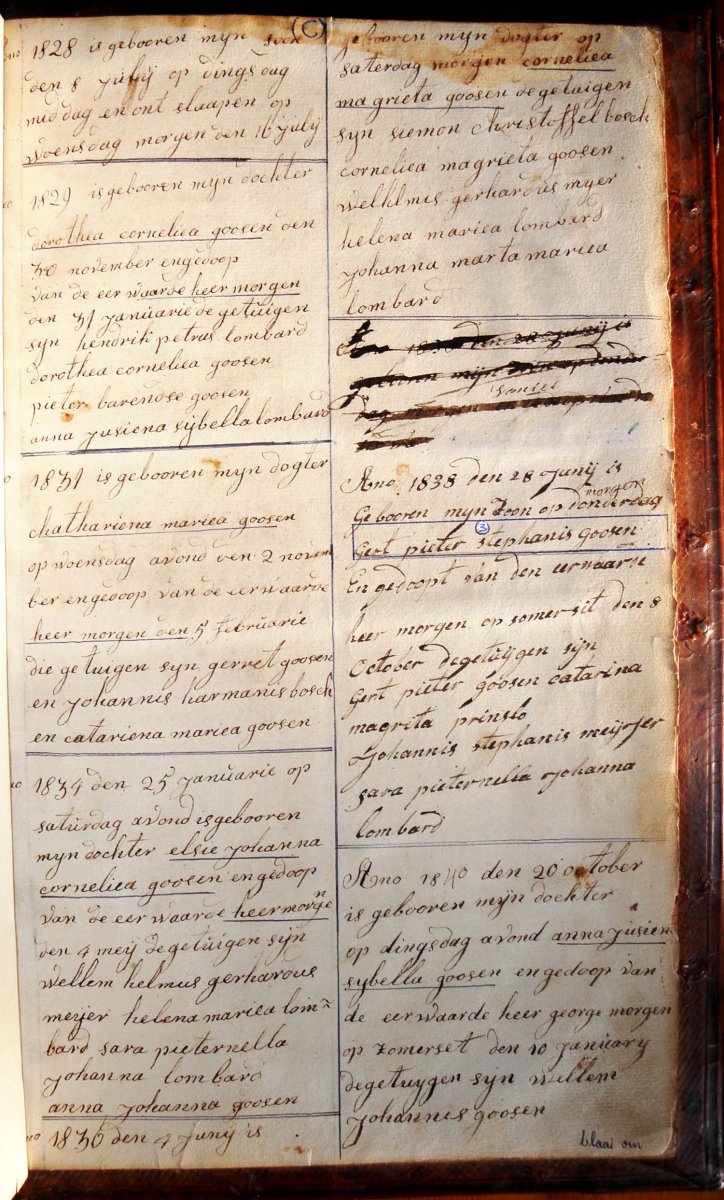 (C)
1828 is gebooren myn soon
den 8 julij op dingsdag
middag en ont slaapen op
woensdag morgen den 16 julij
1829 is gebooren mijn dochter
dorothea corneliea goosen den
30 november en gedoop
van de eer waarde heer morgen
den 31 januarie de getuigen
syn hendrik petrus lombard
dorothea corneliea goosen
pieter barendse goosen
anna jusiena sijbella lombard
1831 is gebooren myn dogter
chathariena mariea goosen
op woensdag avond den 2 novem
ber en gedoop van de eerwaarde
heer morgen den 5 februarie
die getuigen syn gerret goosen
en johannis harmanis bosch
en catariena mariea goosen
1834 den 25 januarie op
saturdag avond is gebooren
myn dochter elsie johanna
corneliea goosen en gedoop
van de eer waarde heer morgn
den 4 meij de getuigen sijn
wellem helmus gerhardus
meijer helena mariea lom
bard sara pieternella
johanna lombard
anna johanna goosen
1836 den 4 junij is
gebooren myn dogter op
saterdag morgen corneliea
magrieta goosen de getuigen
syn siemon christoffel bosch
corneliea magrieta goosen
welhlmis gerhardus myer
helena mariea lombard
johanna marta mariea
lombard
1838 den 28 junij is
gebooren mijn zoon op donder
daniel
dag morgen en
Ano 1838 den 28 Junij is
morgen
Gebooren mijn Zoon op donderdag
3
Gert pieter stephanis goosen
En gedoopt van den eerwaarde
heer morgen op somersit den 8
October de getuijgen sijn
Gert pieter goosen catarina
magrita prinslo
Johannis stephanis meijer
sara pieternella johanna
lombard
Ano 1840 den 20 october
is gebooren mijn dochter
op dingsdag avond anna jusien
sybella goosen en gedoop van
de eerwaarde heer george morgen
op zomerset den 10 januarij
de getuygen sijn wellem
johannis goosen
blaai om